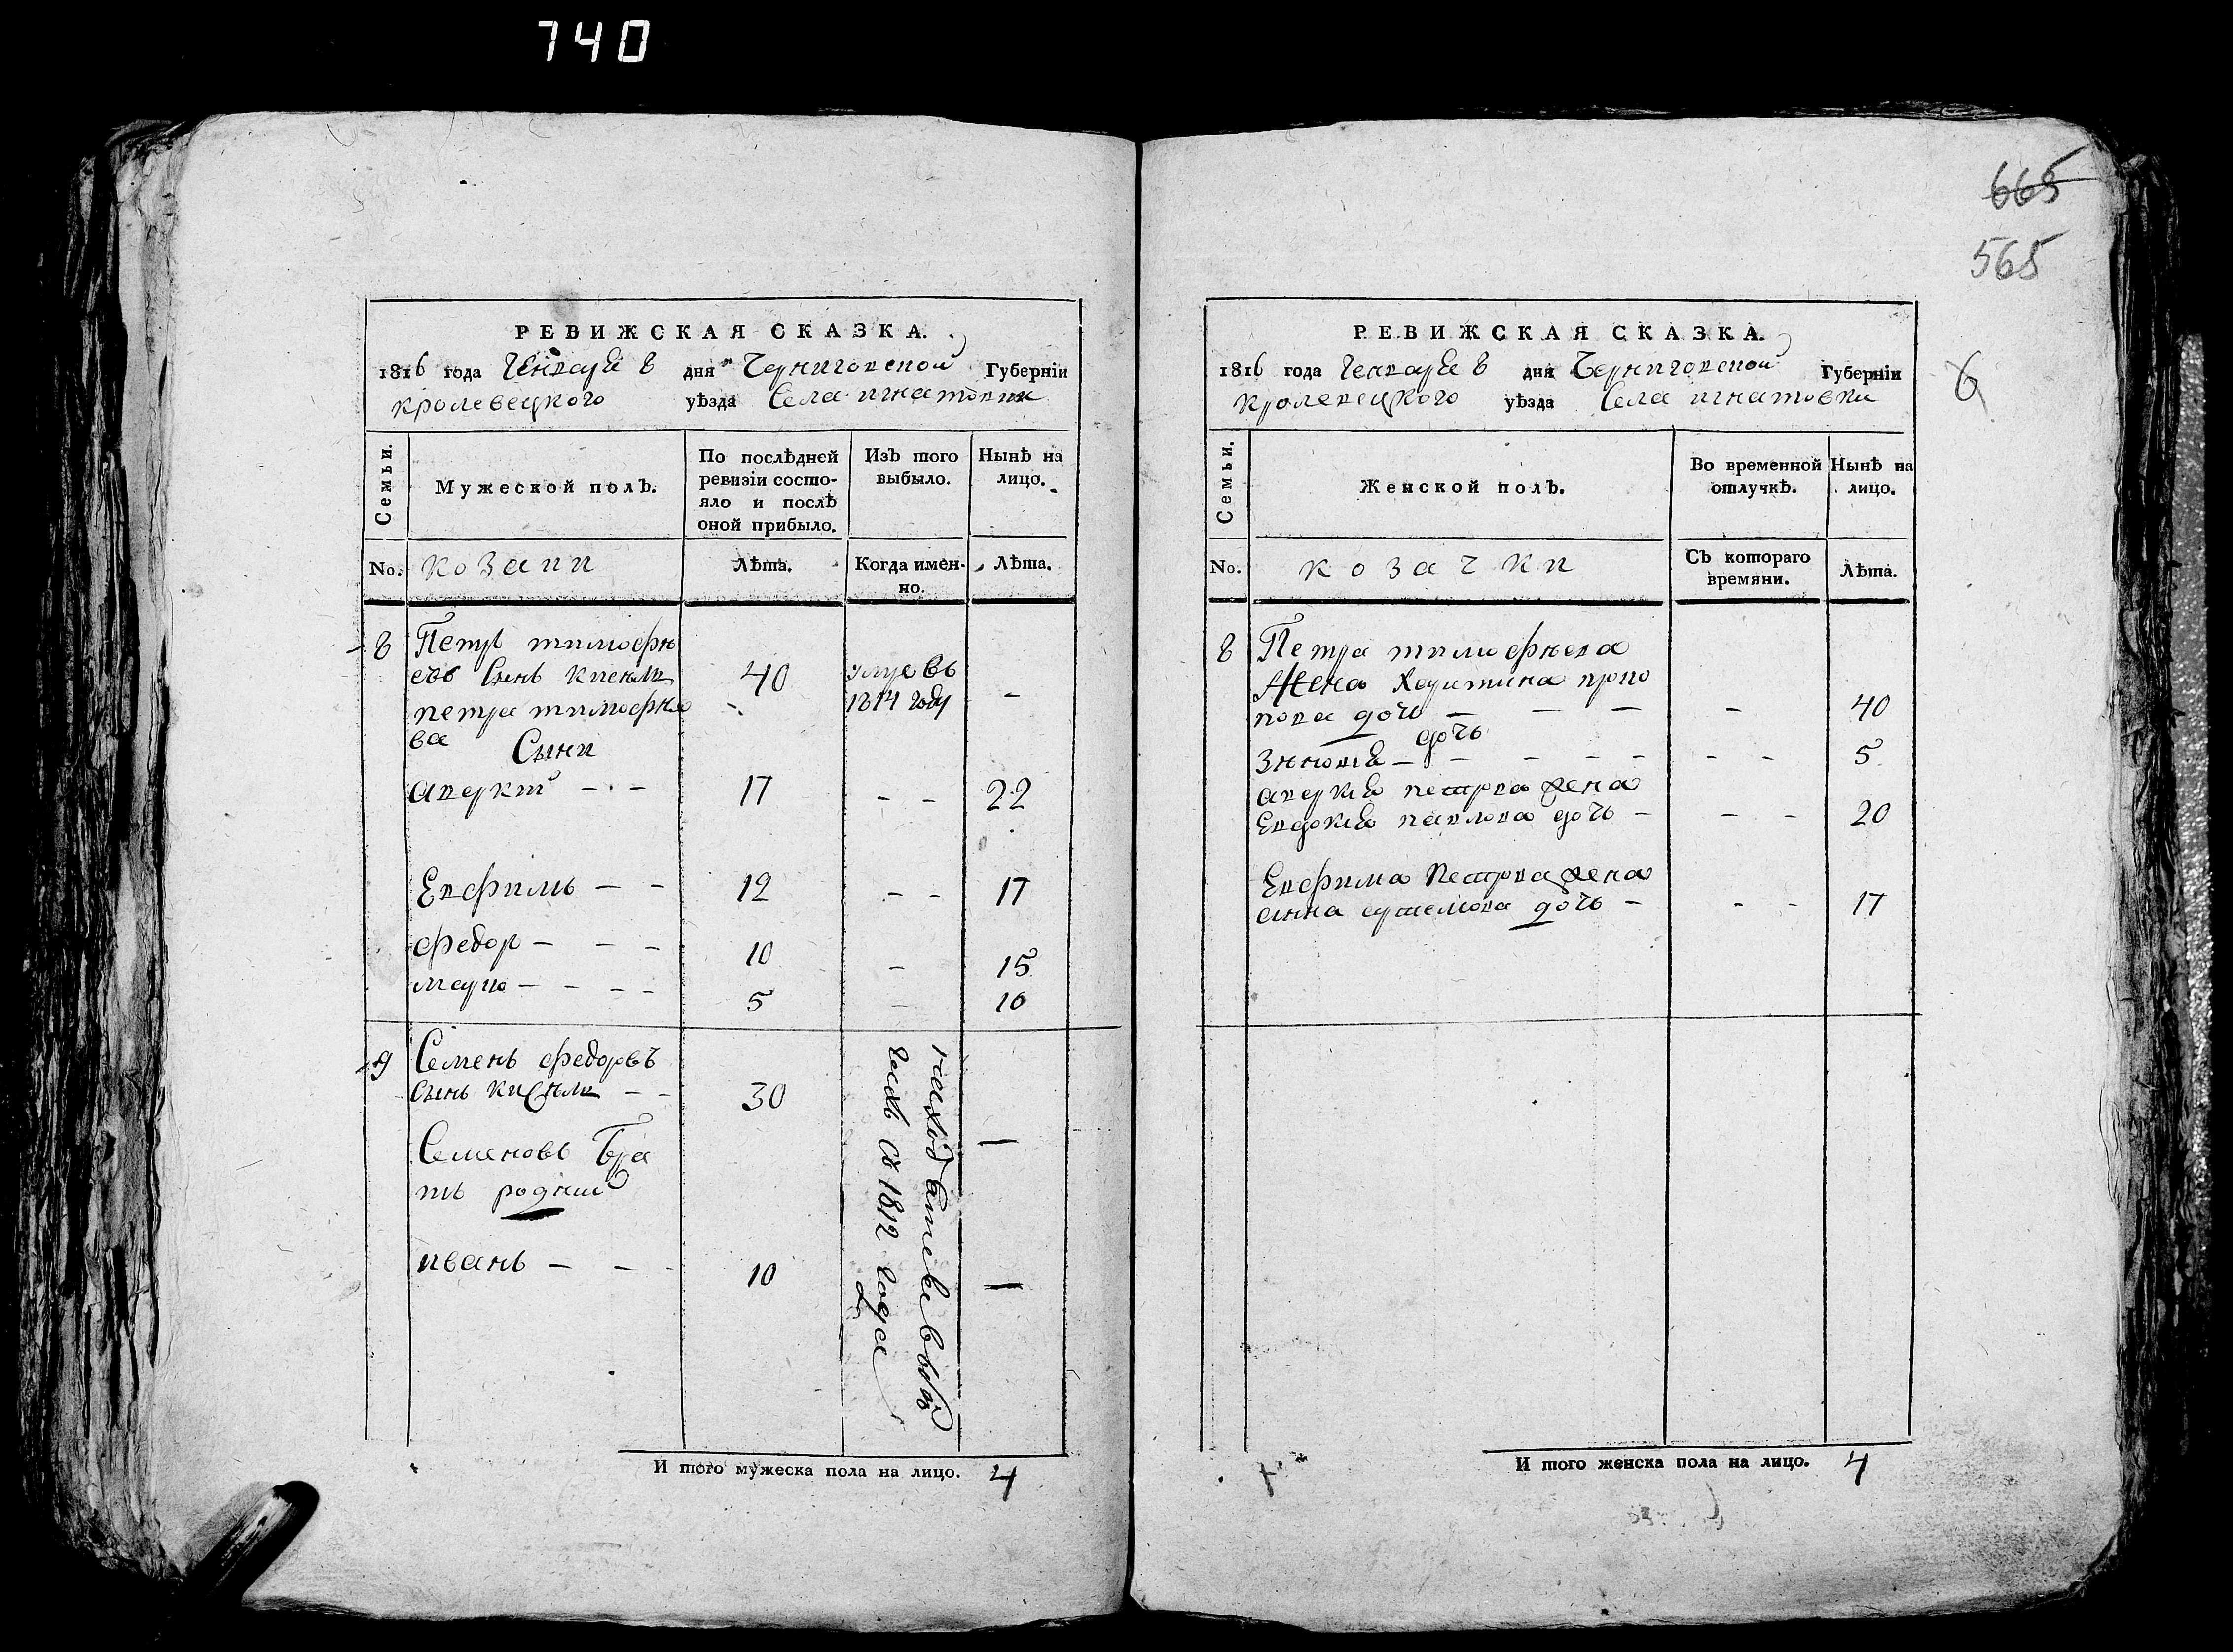 740
РЕВИЖСКАЯ СКАЗКА.
1816 года Генваря 8 дня Черниговской Губерніи
кролевецкого уѣзда Села игнатовки
Семьи.
Мужеской полъ.
По послѣдней ревизіи состояло и послѣ оной прибыло.
Изъ того выбыло.
Нынѣ на лицо.
No. козаки
Лѣта.
Когда именно.
Лѣта.
8 Петръ тимофѣ
евъ Сынъ 40 умре въ
петра тимофѣе 1814 году –
ва Сыни
аверкій – – 17 – – 22
Евфимъ – – 12 – – 17
федор – – – 10 – 15
марко – – – – 5 – 10
9 Семенъ федоровъ
Сынъ – – 30 –
Семеновъ Бра
тъ родний
иванъ – – – 10 –
съ 1812 года
И того мужеска пола на лицо. 4
665
565
6
РЕВИЖСКАЯ СКАЗКА.
1816 года Генваря 8 дня Черниговской Губерніи
кролевецкого уѣзда Села игнатовки
Семьи.
Женской полъ.
Во временной отлучкѣ.
Нынѣ на лицо.
No. козачки
Съ котораго времяни.
Лѣта.
8 Петра тимофѣева
Жена Харитина проко
пова дочь – – – – 40
дочь
Зѣновія – – – – – – – 5
аверкія петрова жена
Евдокія павлова дочь – – – 20
Евфима Петрова жена
анна дочь – – – 17
И того женска пола на лицо. 4